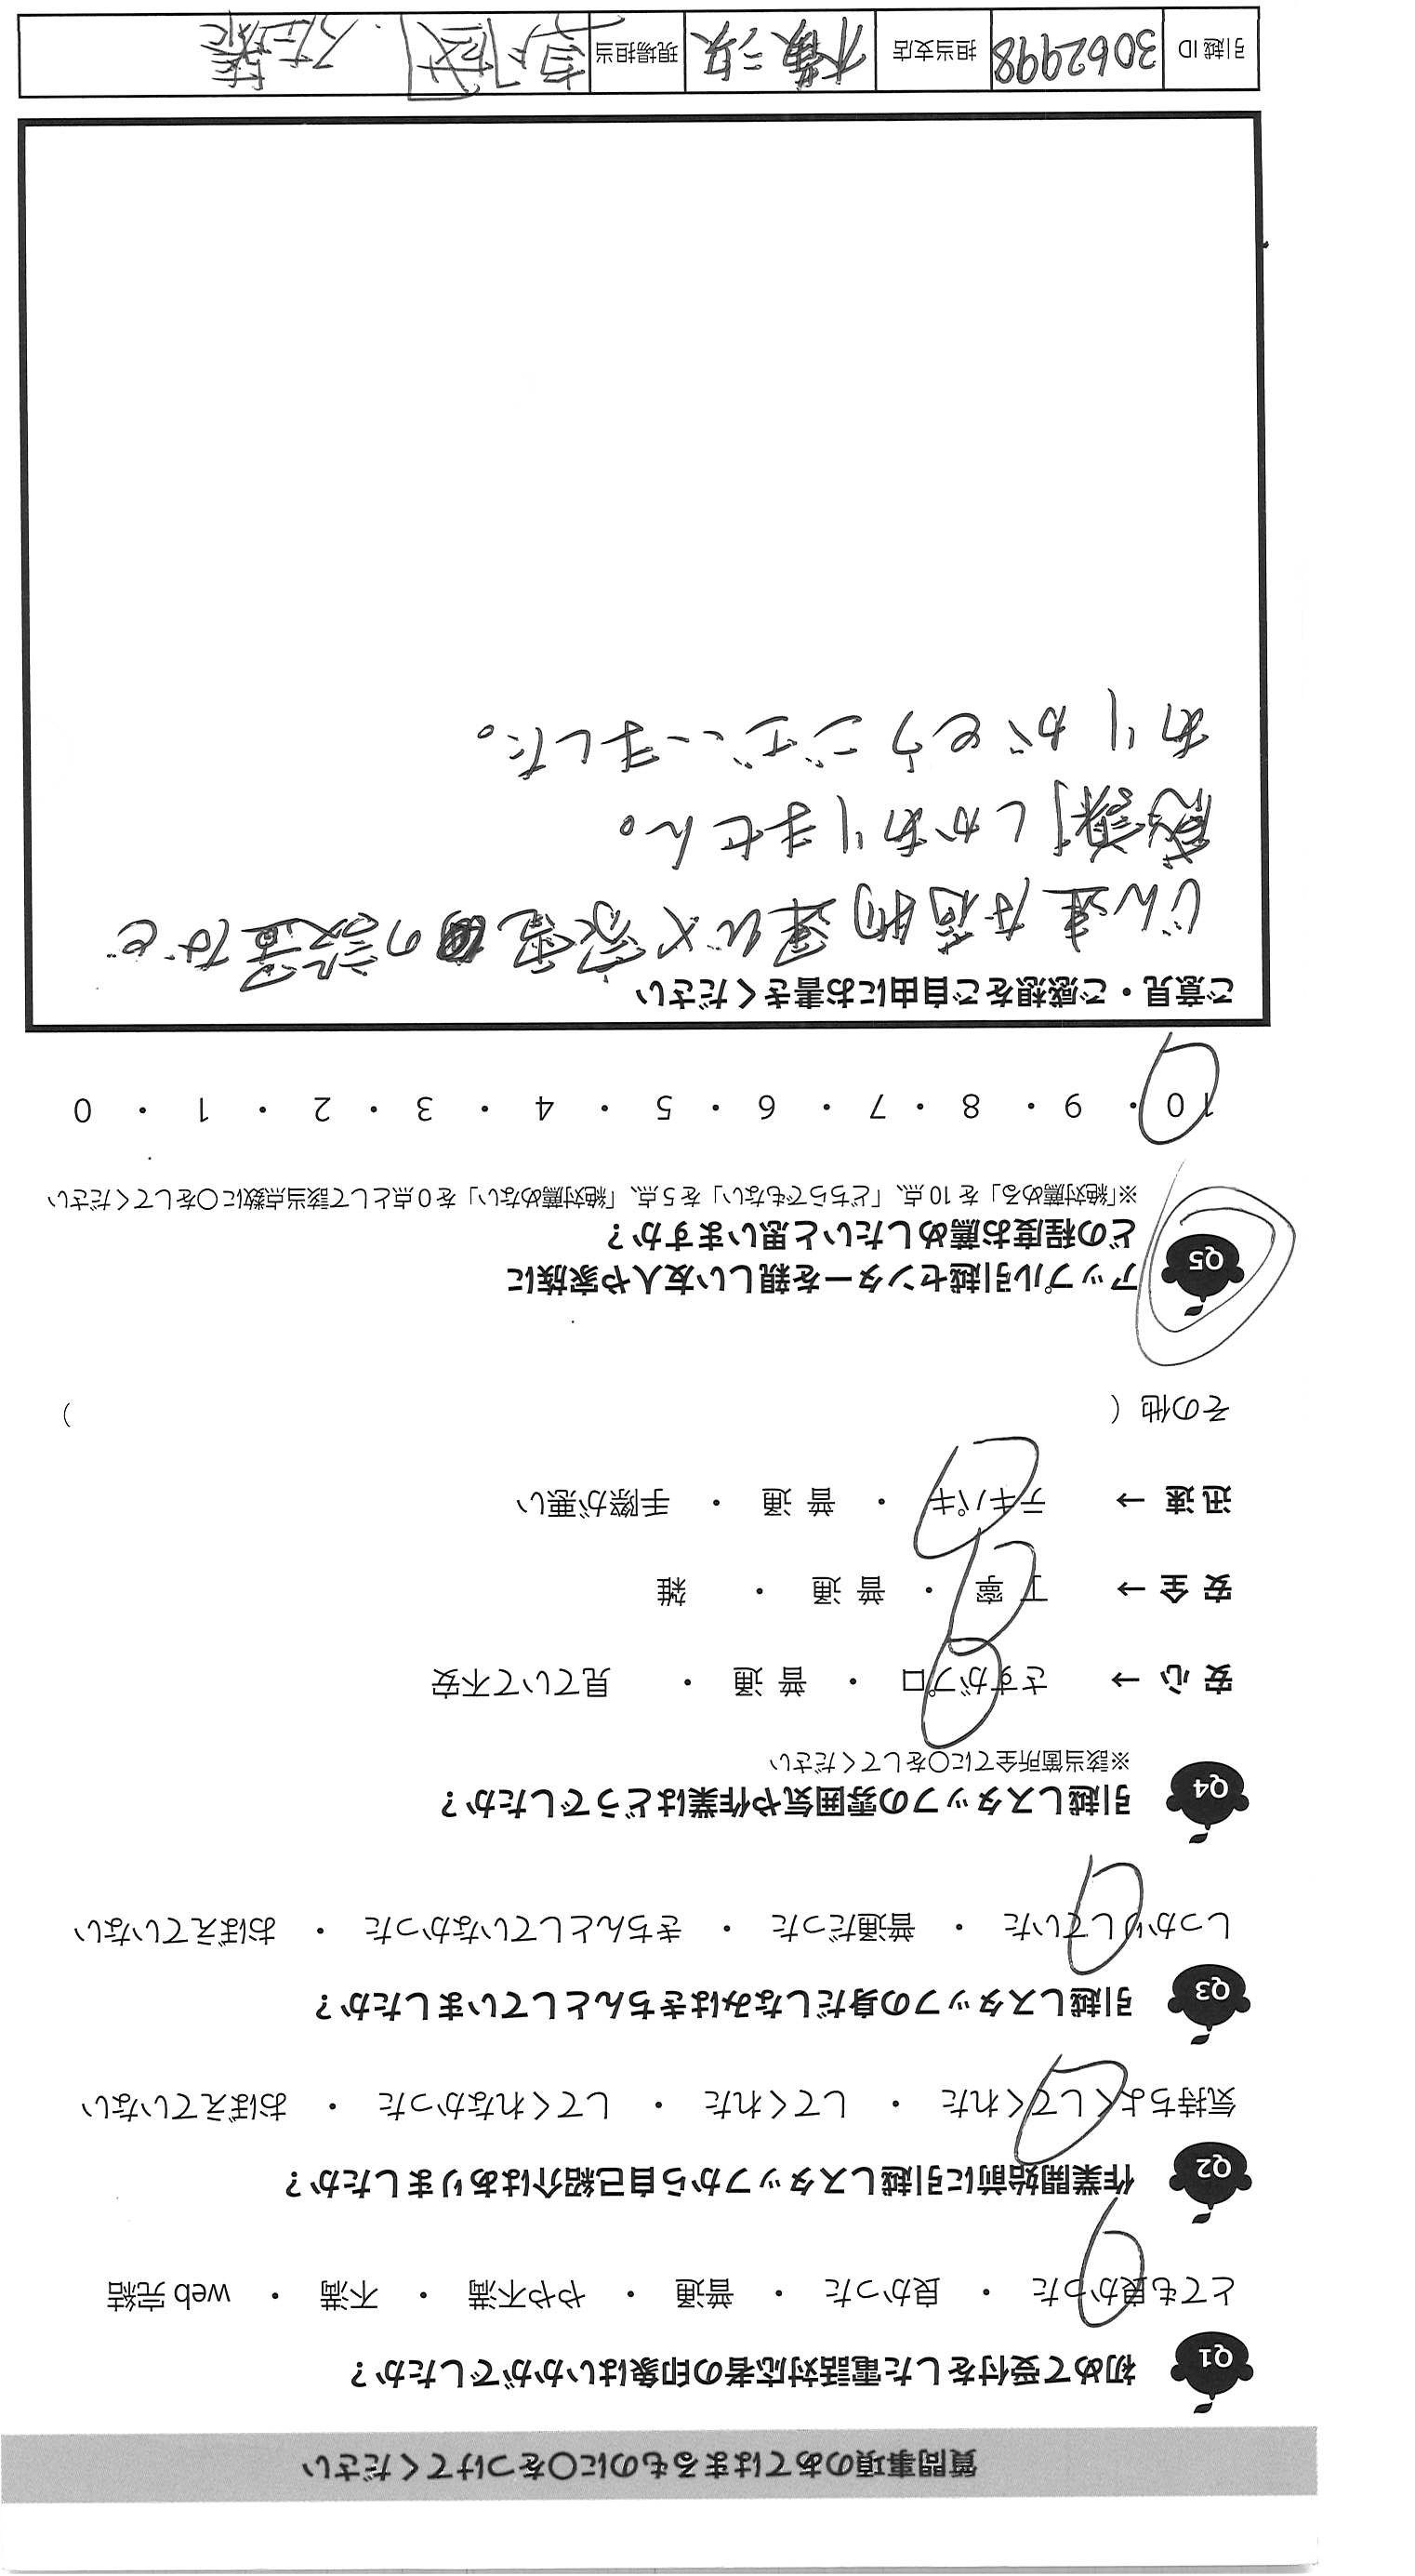 質問事項のあてはまるものに〇をつけてください
Q1 初めて受付をした電話対応者の印象はいかがでしたか？
とても良かった ・ 良かった ・ 普通 ・ やや不満 ・ 不満 ・ web 完結
Q2 作業開始前に引越しスタッフから自己紹介はありましたか？
気持ちよくしてくれた ・ してくれた ・ してくれなかった ・ おぼえていない
Q3 引越しスタッフの身だしなみはきちんとしていましたか？
しっかりしていた ・ 普通だった ・ きちんとしていなかった ・ おぼえていない
Q4 引越しスタッフの雰囲気や作業はどうでしたか？
※該当箇所全てに〇をしてください
安 心 → さすがプロ ・ 普 通 ・ 見ていて不安
安 全 → 丁 寧 ・ 普 通 ・ 雑
迅 速 → テキパキ ・ 普 通 ・ 手際が悪い
その他（ ）
Q5 アップル引越センターを親しい友人や家族に
どの程度お薦めしたいと思いますか？
※「絶対薦める」を 10 点、「どちらでもない」を 5 点、「絶対薦めない」を 0 点として該当点数に〇をしてください
10 ・ 9 ・ 8 ・ 7 ・ 6 ・ 5 ・ 4 ・ 3 ・ 2 ・ 1 ・ 0
ご意見・ご感想をご自由にお書きください
じん速な荷物運びや家電の設置など
感謝しかありません。
ありがとうございました。
引越 ID 3062998 担当支店 横浜 現場担当